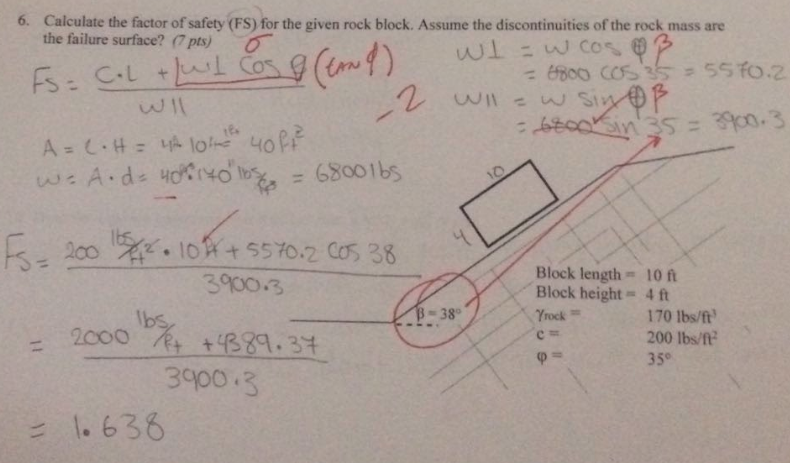 6. Calculate the factor of safety (FS) for the given rock block. Assume the discontinuities of the rock mass are
the failure surface? (7 pts)
σ
FS = C·L + W⊥ Cos φ (tan φ)
W||
-2
W⊥ = W cos φ β
= 6800 cos 35 = 5570.2
W|| = W sin φ β
= 6800 sin 35 = 3900.3
A = L·H = 4ft 10ft = 40ft²
W = A·d = 40ft² 170 lbs/ft³ = 6800 lbs
FS = 200 lbs/ft² · 10ft + 5570.2 cos 38
3900.3
= 2000 lbs/ft + 4389.37
3900.3
= 1.638
10
4
β = 38°
Block length = 10 ft
Block height = 4 ft
γrock = 170 lbs/ft³
c = 200 lbs/ft²
φ = 35°